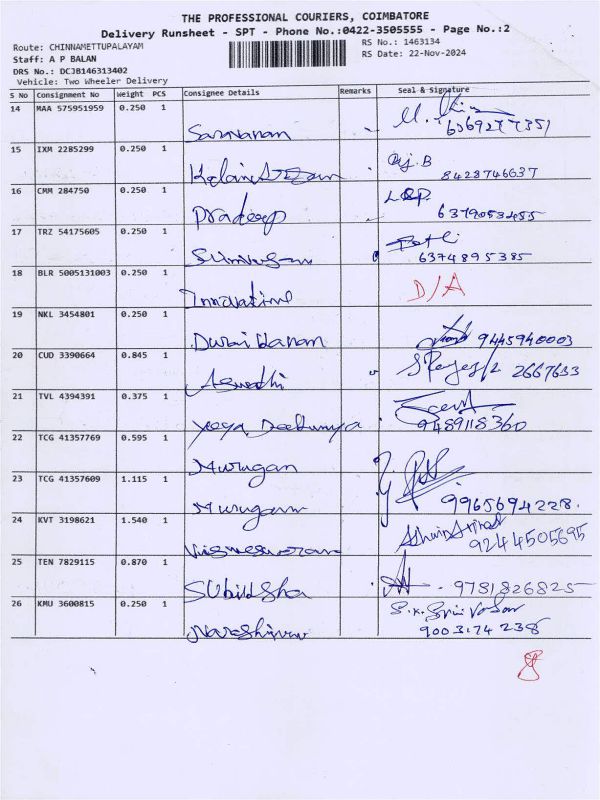 THE PROFESSIONAL COURIERS, COIMBATORE
Delivery Runsheet - SPT - Phone No.:0422-3505555 - Page No.:2
Route: CHINNAMETTUPALAYAM
RS No.: 1463134
Staff: A P BALAN
RS Date: 22-Nov-2024
DRS No.: DCJB146313402
Vehicle: Two Wheeler Delivery
S No Consignment No Weight PCS Consignee Details Remarks Seal & Signature
14 MAA 575951959 0.250 1
Saravanan 6369277351
15 IXM 2285299 0.250 1
8428746637
16 CMM 284750 0.250 1
Pradeep 6379053455
17 TRZ 54175605 0.250 1
6374895385
18 BLR 5005131003 0.250 1
Innovative D/A
19 NKL 3454801 0.250 1
9445940003
20 CUD 3390664 0.845 1
Aswathi 2667633
21 TVL 4394391 0.375 1
9489118360
22 TCG 41357769 0.595 1
Murugan
23 TCG 41357609 1.115 1
Murugan 9965694228.
24 KVT 3198621 1.540 1
9244505695
25 TEN 7829115 0.870 1
9781826825
26 KMU 3600815 0.250 1
9003174238